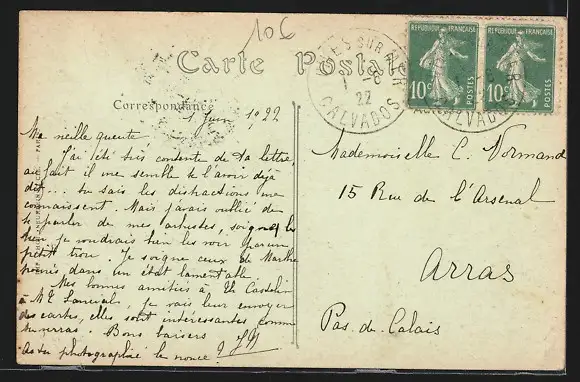 10 €
Carte Postale
RÉPUBLIQUE FRANÇAISE
10c
POSTES
RÉPUBLIQUE FRANÇAISE
10c
POSTES
SUR MER
22
CALVADOS
Correspondance
1 Juin 1922
Ma vieille
J'ai été très contente de ta lettre
au fait il me semble te l'avoir déjà
dit... tu sais les distractions me
connaissent. Mais j'avais oublié de
te parler de mes arbustes, soigne les
bien je voudrais bien les voir par un
petit trou. Je soigne ceux de Marthe
dans un état lamentable.
Mes bonnes amitiés à
à je vais leur envoyer
des cartes, elles sont intéressantes comme
tu verras. Bons baisers
As-tu photographié le
Mademoiselle C. Normand
15 Rue de l'Arsenal
Arras
Pas-de-Calais